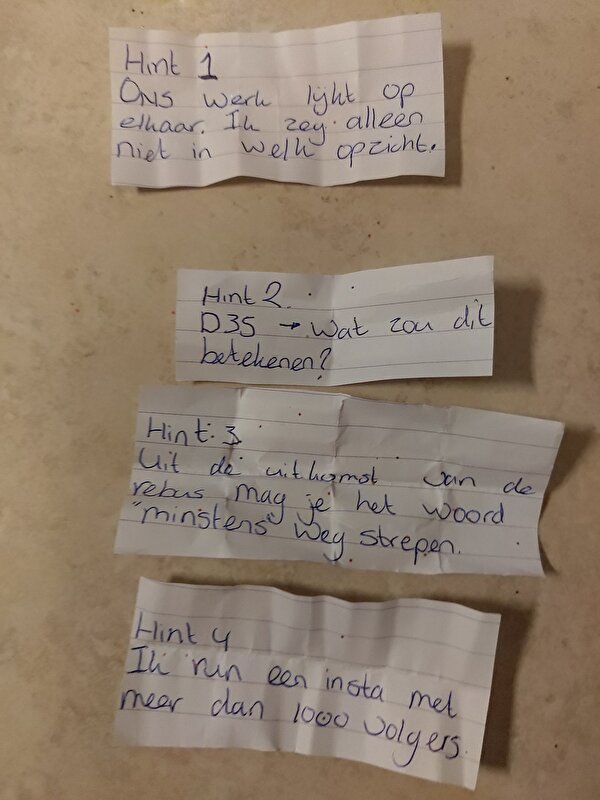 Hint 1
Ons werk lijkt op
elkaar. Ik zeg alleen
niet in welk opzicht.
Hint 2
D35 → Wat zou dit
betekenen?
Hint: 3
Uit de uitkomst van de
rebus mag je het woord
"minstens" weg strepen.
Hint 4
Ik run een insta met
meer dan 1000 volgers.